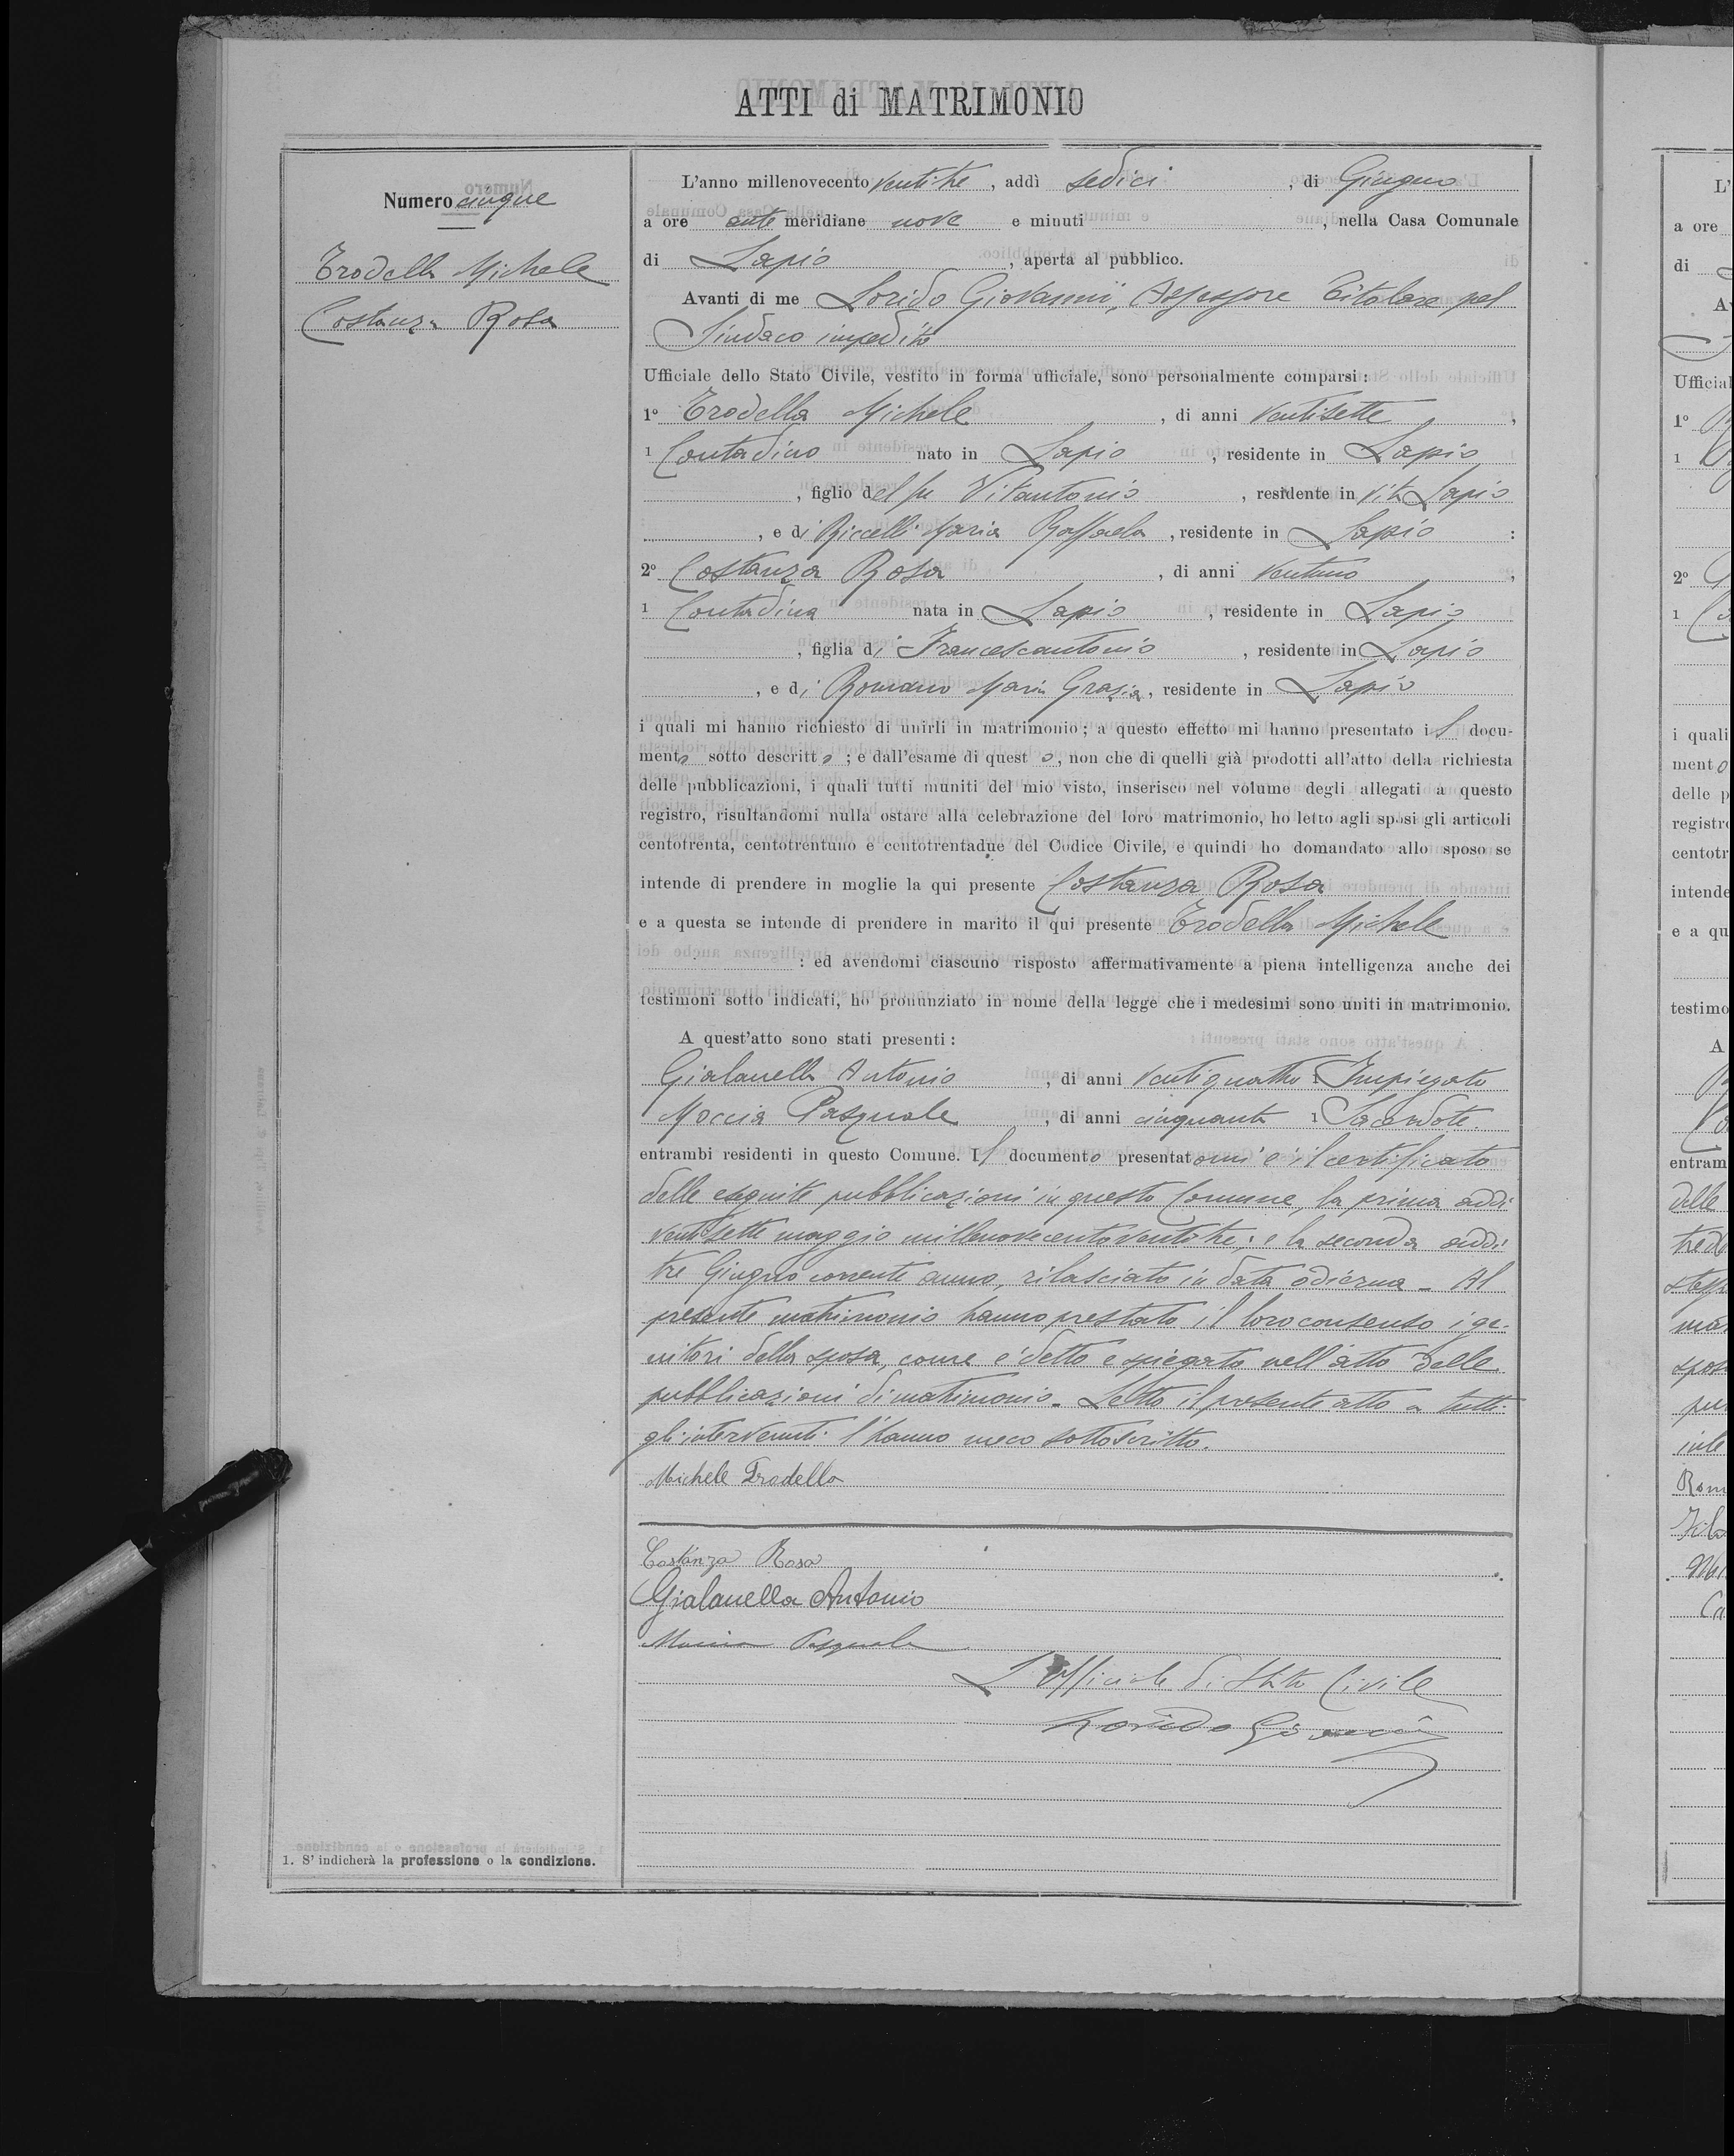 ATTI di MATRIMONIO
Numero cinque
Trodella Michele
Costanza Rosa
L'anno millenovecento ventitre, addì sedici, di Giugno
a ore ante meridiane nove e minuti, nella Casa Comunale
di Lapio, aperta al pubblico.
Avanti di me Lorido Giovanni, Assessore titolare pel
Sindaco impedito
Ufficiale dello Stato Civile, vestito in forma ufficiale, sono personalmente comparsi :
1° Trodella Michele, di anni ventisette,
1 Contadino nato in Lapio, residente in Lapio
, figlio del fu Vitantonio, residente in vita Lapio
, e di Riccelli Maria Raffaela, residente in Lapio :
2° Costanza Rosa, di anni ventuno,
1 Contadina nata in Lapio, residente in Lapio
, figlia di Francescantonio, residente in Lapio
, e di Romano Maria Grazia, residente in Lapio
i quali mi hanno richiesto di unirli in matrimonio ; a questo effetto mi hanno presentato il docu-
mento sotto descritto ; e dall'esame di questo, non che di quelli già prodotti all'atto della richiesta
delle pubblicazioni, i quali tutti muniti del mio visto, inserisco nel volume degli allegati a questo
registro, risultandomi nulla ostare alla celebrazione del loro matrimonio, ho letto agli sposi gli articoli
centotrenta, centotrentuno e centotrentadue del Codice Civile, e quindi ho domandato allo sposo se
intende di prendere in moglie la qui presente Costanza Rosa
e a questa se intende di prendere in marito il qui presente Trodella Michele
: ed avendomi ciascuno risposto affermativamente a piena intelligenza anche dei
testimoni sotto indicati, ho pronunziato in nome della legge che i medesimi sono uniti in matrimonio.
A quest'atto sono stati presenti :
Gialanella Antonio, di anni ventiquattro 1 Impiegato
Moccia Pasquale, di anni cinquanta 1 Sacerdote.
entrambi residenti in questo Comune. Il documento presentatomi è il certificato
delle eseguite pubblicazioni in questo Comune, la prima addì
ventisette maggio millenovecentoventitre; e la seconda addì
tre Giugno corrente anno, rilasciato in data odierna - Al
presente matrimonio hanno prestato il loro consenso i ge-
nitori della sposa, come è detto e spiegato nell'atto delle
pubblicazioni di matrimonio. Letto il presente atto a tutti
gli intervenuti l'hanno meco sottoscritto.
Michele Trodella
Costanza Rosa
Gialanella Antonio
Moccia Pasquale
L'Ufficiale di Stato Civile
Lorido Giovanni
1. S'indicherà la professione o la condizione.
L'
a ore
di
A
Ufficial
1°
1
2°
1
i quali
mento
delle p
registro
centotr
intende
e a qu
testimo
A
entram
delle